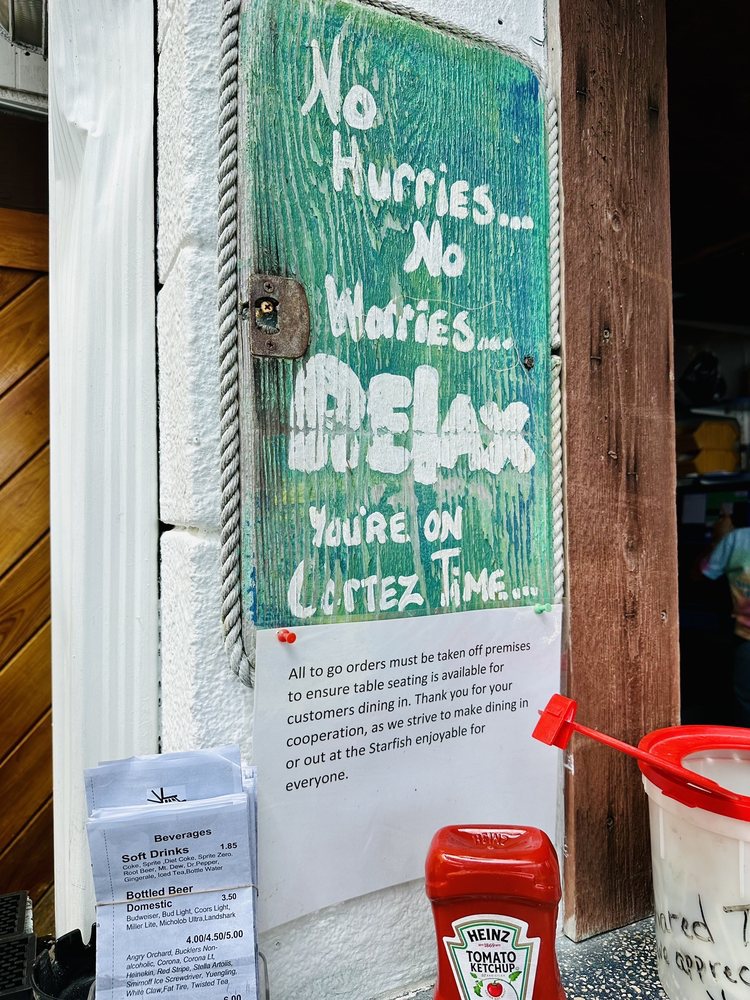 No
Hurries...
No
Worries...
RELAX
YOU'RE ON
CORTEZ TIME...
All to go orders must be taken off premises
to ensure table seating is available for
customers dining in. Thank you for your
cooperation, as we strive to make dining in
or out at the Starfish enjoyable for
everyone.
Beverages
Soft Drinks 1.85
Coke, Sprite ,Diet Coke, Sprite Zero,
Root Beer, Mt. Dew, Dr Pepper,
Gingerale, Iced Tea,Bottle Water
Bottled Beer
Domestic 3.50
Budweiser, Bud Light, Coors Light,
Miller Lite, Micholob Ultra,Landshark
4.00/4.50/5.00
Angry Orchard, Bucklers Non-
alcoholic, Corona, Corona Lt,
Heinekin, Red Stripe, Stella Artoiis,
Smirnoff Ice Screwdriver, Yuengling,
White Claw,Fat Tire, Twisted Tea
6.00
HEINZ
HEINZ
TOMATO
KETCHUP
ared T
e apprec